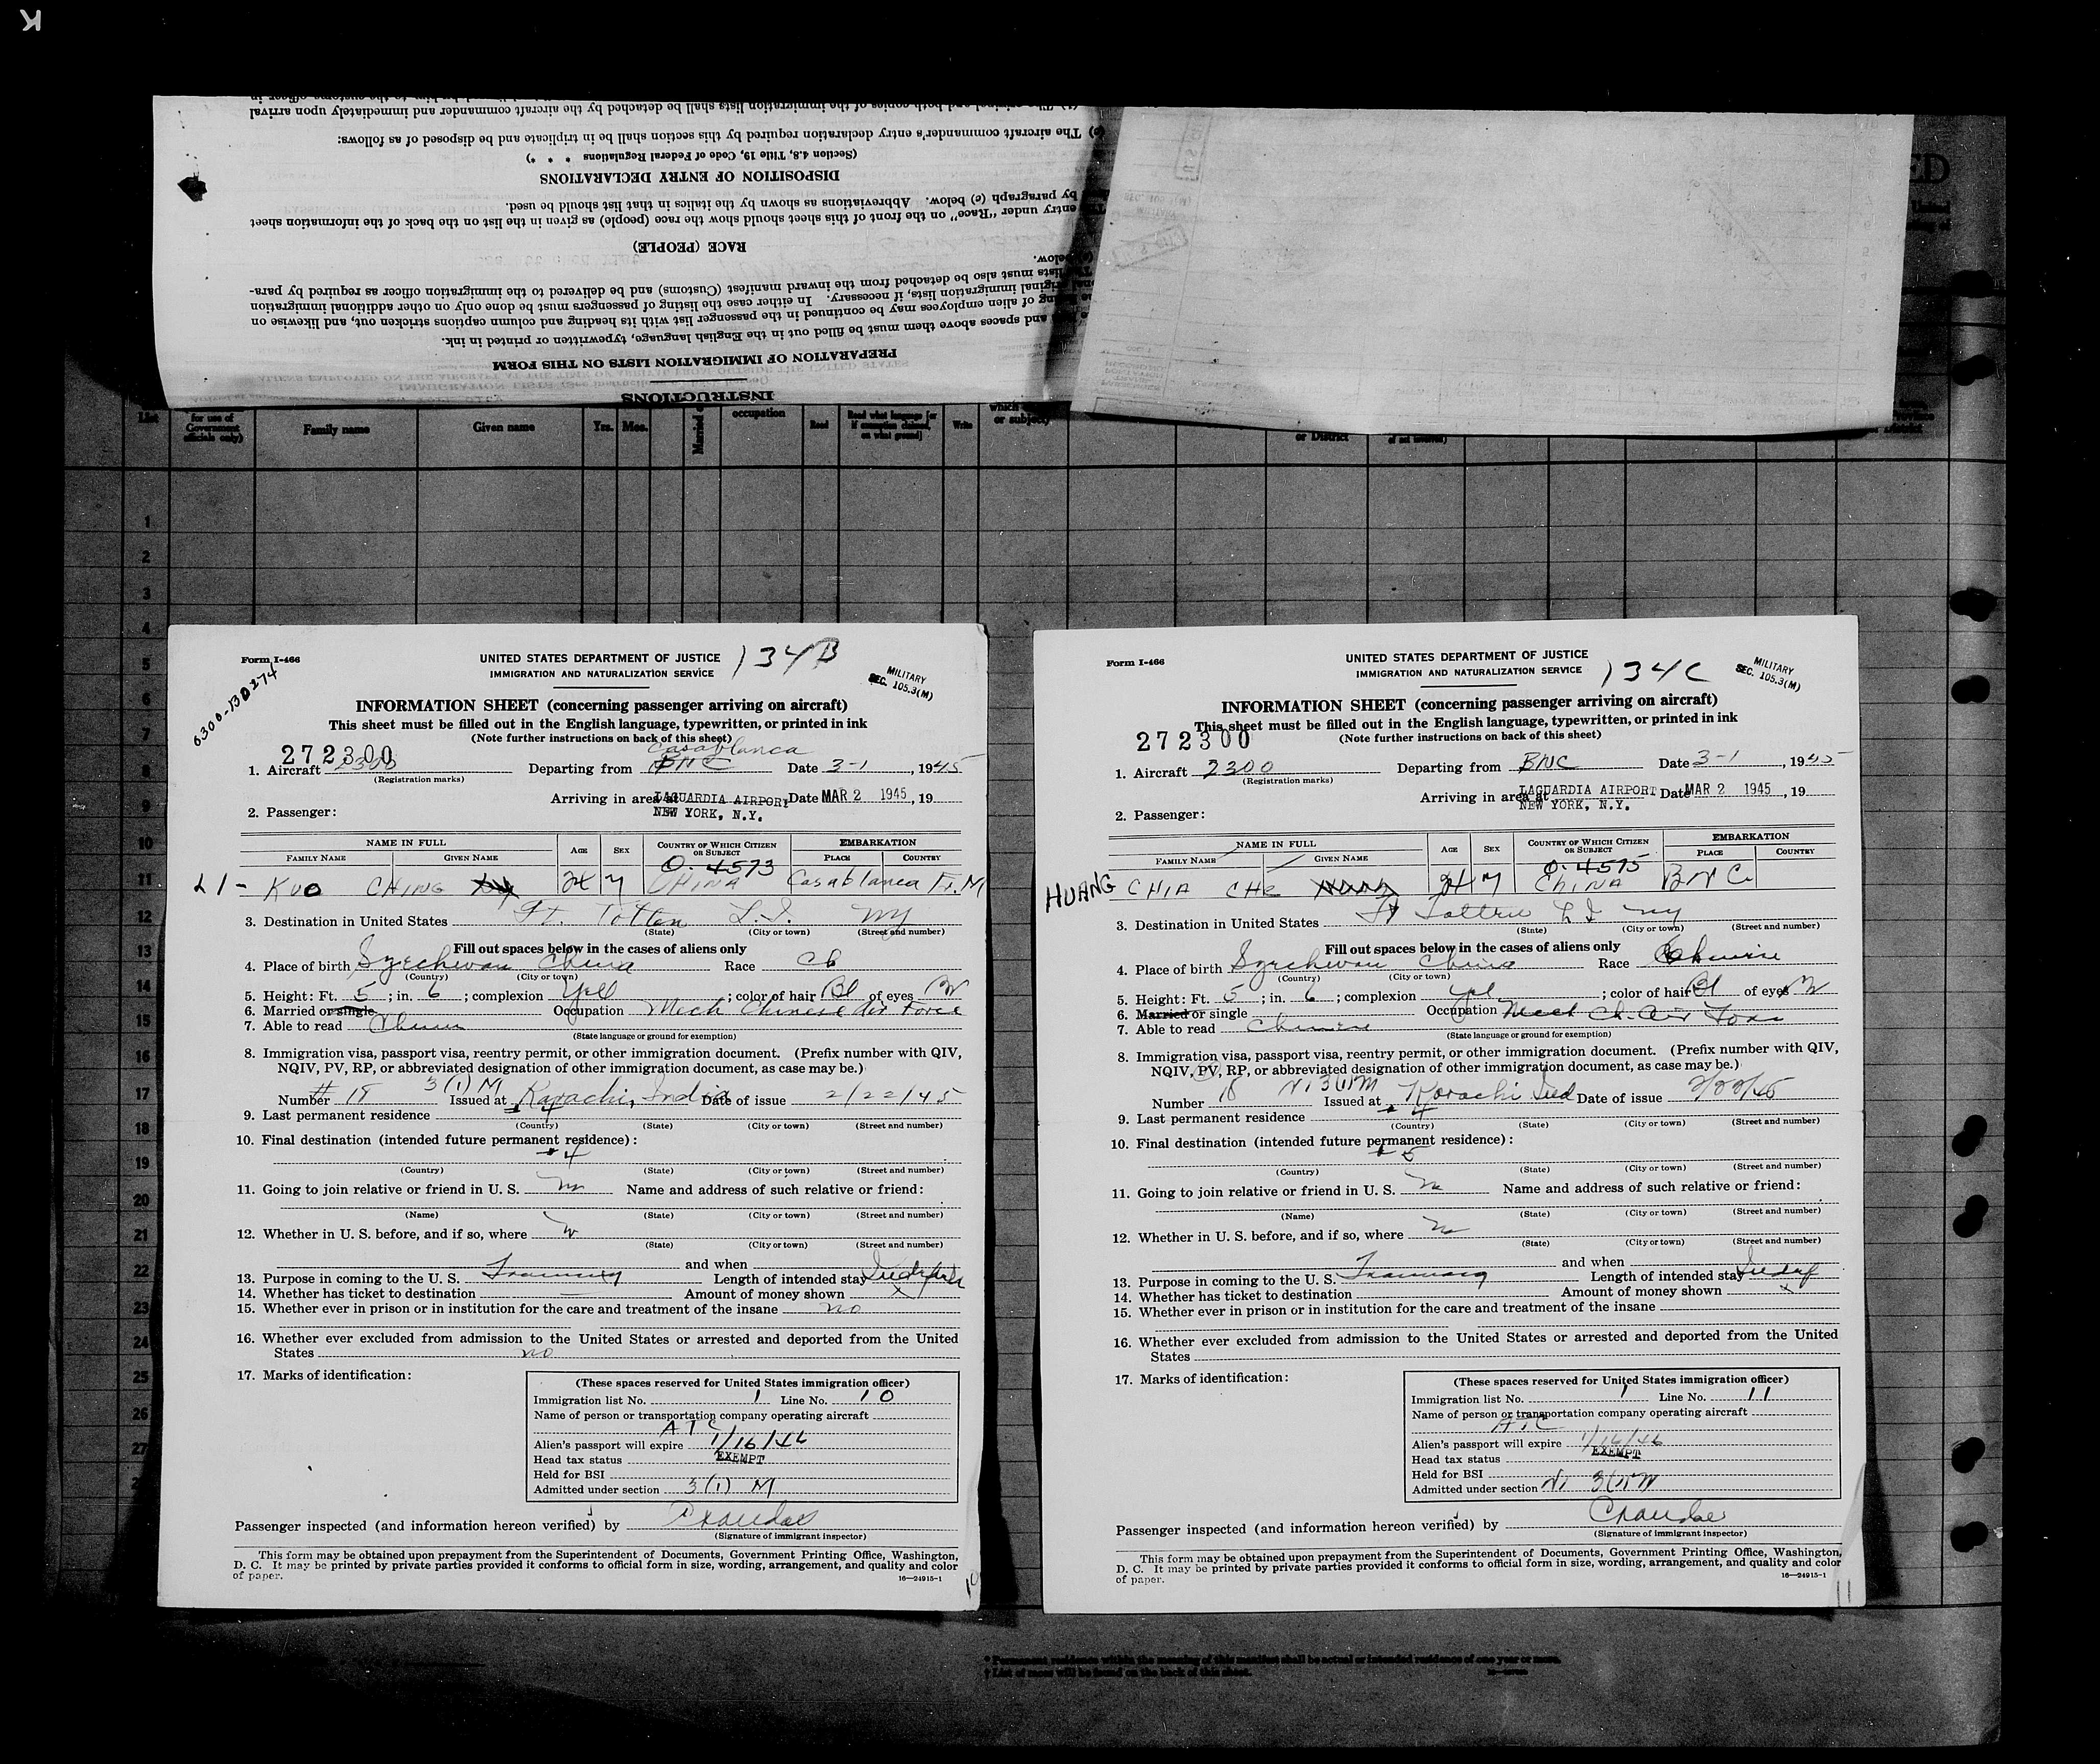 K
(1) The original and both copies of the immigration lists shall be detached by the aircraft commander and immediately upon arrival
The aircraft commander's entry declaration required by this section shall be in triplicate and be disposed of as follows:
(Section 4.8, Title 19, Code of Federal Regulations * * *)
DISPOSITION OF ENTRY DECLARATIONS
by paragraph (c) below. Abbreviations as shown by the italics in that list should be used.
entry under "Race" on the front of this sheet should show the race (people) as given in the list on the back of the information sheet
RACE (PEOPLE)
below.
lists must also be detached from the inward manifest (Customs) and be delivered to the immigration officer as required by para-
original immigration lists, if necessary. In either case the listing of passengers must be done only on other additional immigration
of alien employees may be continued in the passenger list with its heading and column captions stricken out, and likewise on
and spaces above them must be filled out in the English language, typewritten or printed in ink.
PREPARATION OF IMMIGRATION LISTS ON THIS FORM
INSTRUCTIONS
List
for use of Government officials only)
Family name
Given name
Yrs.
Mos.
occupation
Read
Read what language [or if exemption claimed, on what ground]
Write
or subject
or District
1
2
3
4
5
6
7
8
9
10
11
12
13
14
15
16
17
18
19
20
21
22
23
24
25
26
27
Form I-466
6300-130274
UNITED STATES DEPARTMENT OF JUSTICE
IMMIGRATION AND NATURALIZATION SERVICE
134B
MILITARY
SEC. 105.3(M)
INFORMATION SHEET (concerning passenger arriving on aircraft)
This sheet must be filled out in the English language, typewritten, or printed in ink
(Note further instructions on back of this sheet)
272300
Casablanca
1. Aircraft 2300 Departing from BNC Date 3-1, 1945
(Registration marks)
Arriving in area at LAGUARDIA AIRPORT Date MAR 2 1945, 19
NEW YORK, N.Y.
2. Passenger:
NAME IN FULL
FAMILY NAME
GIVEN NAME
AGE
SEX
COUNTRY OF WHICH CITIZEN OR SUBJECT
EMBARKATION
PLACE
COUNTRY
O-4573
KUO CHING CHINA Casablanca Fr. M
3. Destination in United States Ft. Totten L.I. NY
(State) (City or town) (Street and number)
Fill out spaces below in the cases of aliens only
4. Place of birth Szechwan China Race Ch
(Country) (City or town)
5. Height: Ft. 5; in. 6; complexion Yell; color of hair Bl of eyes Br
6. Married or single Occupation Mech Chinese Air Force
7. Able to read Chinese
(State language or ground for exemption)
8. Immigration visa, passport visa, reentry permit, or other immigration document. (Prefix number with QIV,
NQIV, PV, RP, or abbreviated designation of other immigration document, as case may be.)
Number # 18 3(1) M Issued at Karachi, India Date of issue 2/22/45
9. Last permanent residence # 4
(Country) (State) (City or town) (Street and number)
10. Final destination (intended future permanent residence):
# 4
(Country) (State) (City or town) (Street and number)
11. Going to join relative or friend in U. S. no Name and address of such relative or friend:
(Name) (State) (City or town) (Street and number)
12. Whether in U. S. before, and if so, where no
(State) (City or town) (Street and number)
and when
13. Purpose in coming to the U. S. Training Length of intended stay
14. Whether has ticket to destination — Amount of money shown x
15. Whether ever in prison or in institution for the care and treatment of the insane no
16. Whether ever excluded from admission to the United States or arrested and deported from the United
States no
17. Marks of identification:
(These spaces reserved for United States immigration officer)
Immigration list No. 1 Line No. 10
Name of person or transportation company operating aircraft
ATC
Alien's passport will expire 1/16/46
Head tax status EXEMPT
Held for BSI
Admitted under section 3(1) M
Passenger inspected (and information hereon verified) by
(Signature of immigrant inspector)
This form may be obtained upon prepayment from the Superintendent of Documents, Government Printing Office, Washington,
D. C. It may be printed by private parties provided it conforms to official form in size, wording, arrangement, and quality and color
of paper.
16—24915-1
10
Form I-466
UNITED STATES DEPARTMENT OF JUSTICE
IMMIGRATION AND NATURALIZATION SERVICE
134C
MILITARY
SEC. 105.3(M)
INFORMATION SHEET (concerning passenger arriving on aircraft)
This sheet must be filled out in the English language, typewritten, or printed in ink
(Note further instructions on back of this sheet)
272300
1. Aircraft 2300 Departing from BNC Date 3-1, 1945
(Registration marks)
Arriving in area at LAGUARDIA AIRPORT Date MAR 2 1945, 19
NEW YORK, N.Y.
2. Passenger:
NAME IN FULL
FAMILY NAME
GIVEN NAME
AGE
SEX
COUNTRY OF WHICH CITIZEN OR SUBJECT
EMBARKATION
PLACE
COUNTRY
O-4575
HUANG CHIA CHE CHINA BNC
3. Destination in United States Ft Totten L I NY
(State) (City or town) (Street and number)
Fill out spaces below in the cases of aliens only
4. Place of birth Szechwan China Race Chinese
(Country) (City or town)
5. Height: Ft. 5; in. 6; complexion yel; color of hair Bl of eyes Br
6. Married or single Occupation Mech Ch. Air Force
7. Able to read Chinese
(State language or ground for exemption)
8. Immigration visa, passport visa, reentry permit, or other immigration document. (Prefix number with QIV,
NQIV, PV, RP, or abbreviated designation of other immigration document, as case may be.)
Number 18 3(1)M Issued at Karachi Ind Date of issue 2/22/45
9. Last permanent residence # 4
(Country) (State) (City or town) (Street and number)
10. Final destination (intended future permanent residence):
# 5
(Country) (State) (City or town) (Street and number)
11. Going to join relative or friend in U. S. no Name and address of such relative or friend:
(Name) (State) (City or town) (Street and number)
12. Whether in U. S. before, and if so, where no
(State) (City or town) (Street and number)
and when
13. Purpose in coming to the U. S. Training Length of intended stay Indef
14. Whether has ticket to destination Amount of money shown x
15. Whether ever in prison or in institution for the care and treatment of the insane
16. Whether ever excluded from admission to the United States or arrested and deported from the United
States
17. Marks of identification:
(These spaces reserved for United States immigration officer)
Immigration list No. 1 Line No. 11
Name of person or transportation company operating aircraft
ATC
Alien's passport will expire 1/16/46
Head tax status EXEMPT
Held for BSI
Admitted under section 3(1)M
Passenger inspected (and information hereon verified) by
(Signature of immigrant inspector)
This form may be obtained upon prepayment from the Superintendent of Documents, Government Printing Office, Washington,
D. C. It may be printed by private parties provided it conforms to official form in size, wording, arrangement, and quality and color
of paper.
16—24915-1
11
* Permanent residence within the meaning of this manifest shall be actual or intended residence of one year or more.
† List of races will be found on the back of this sheet.